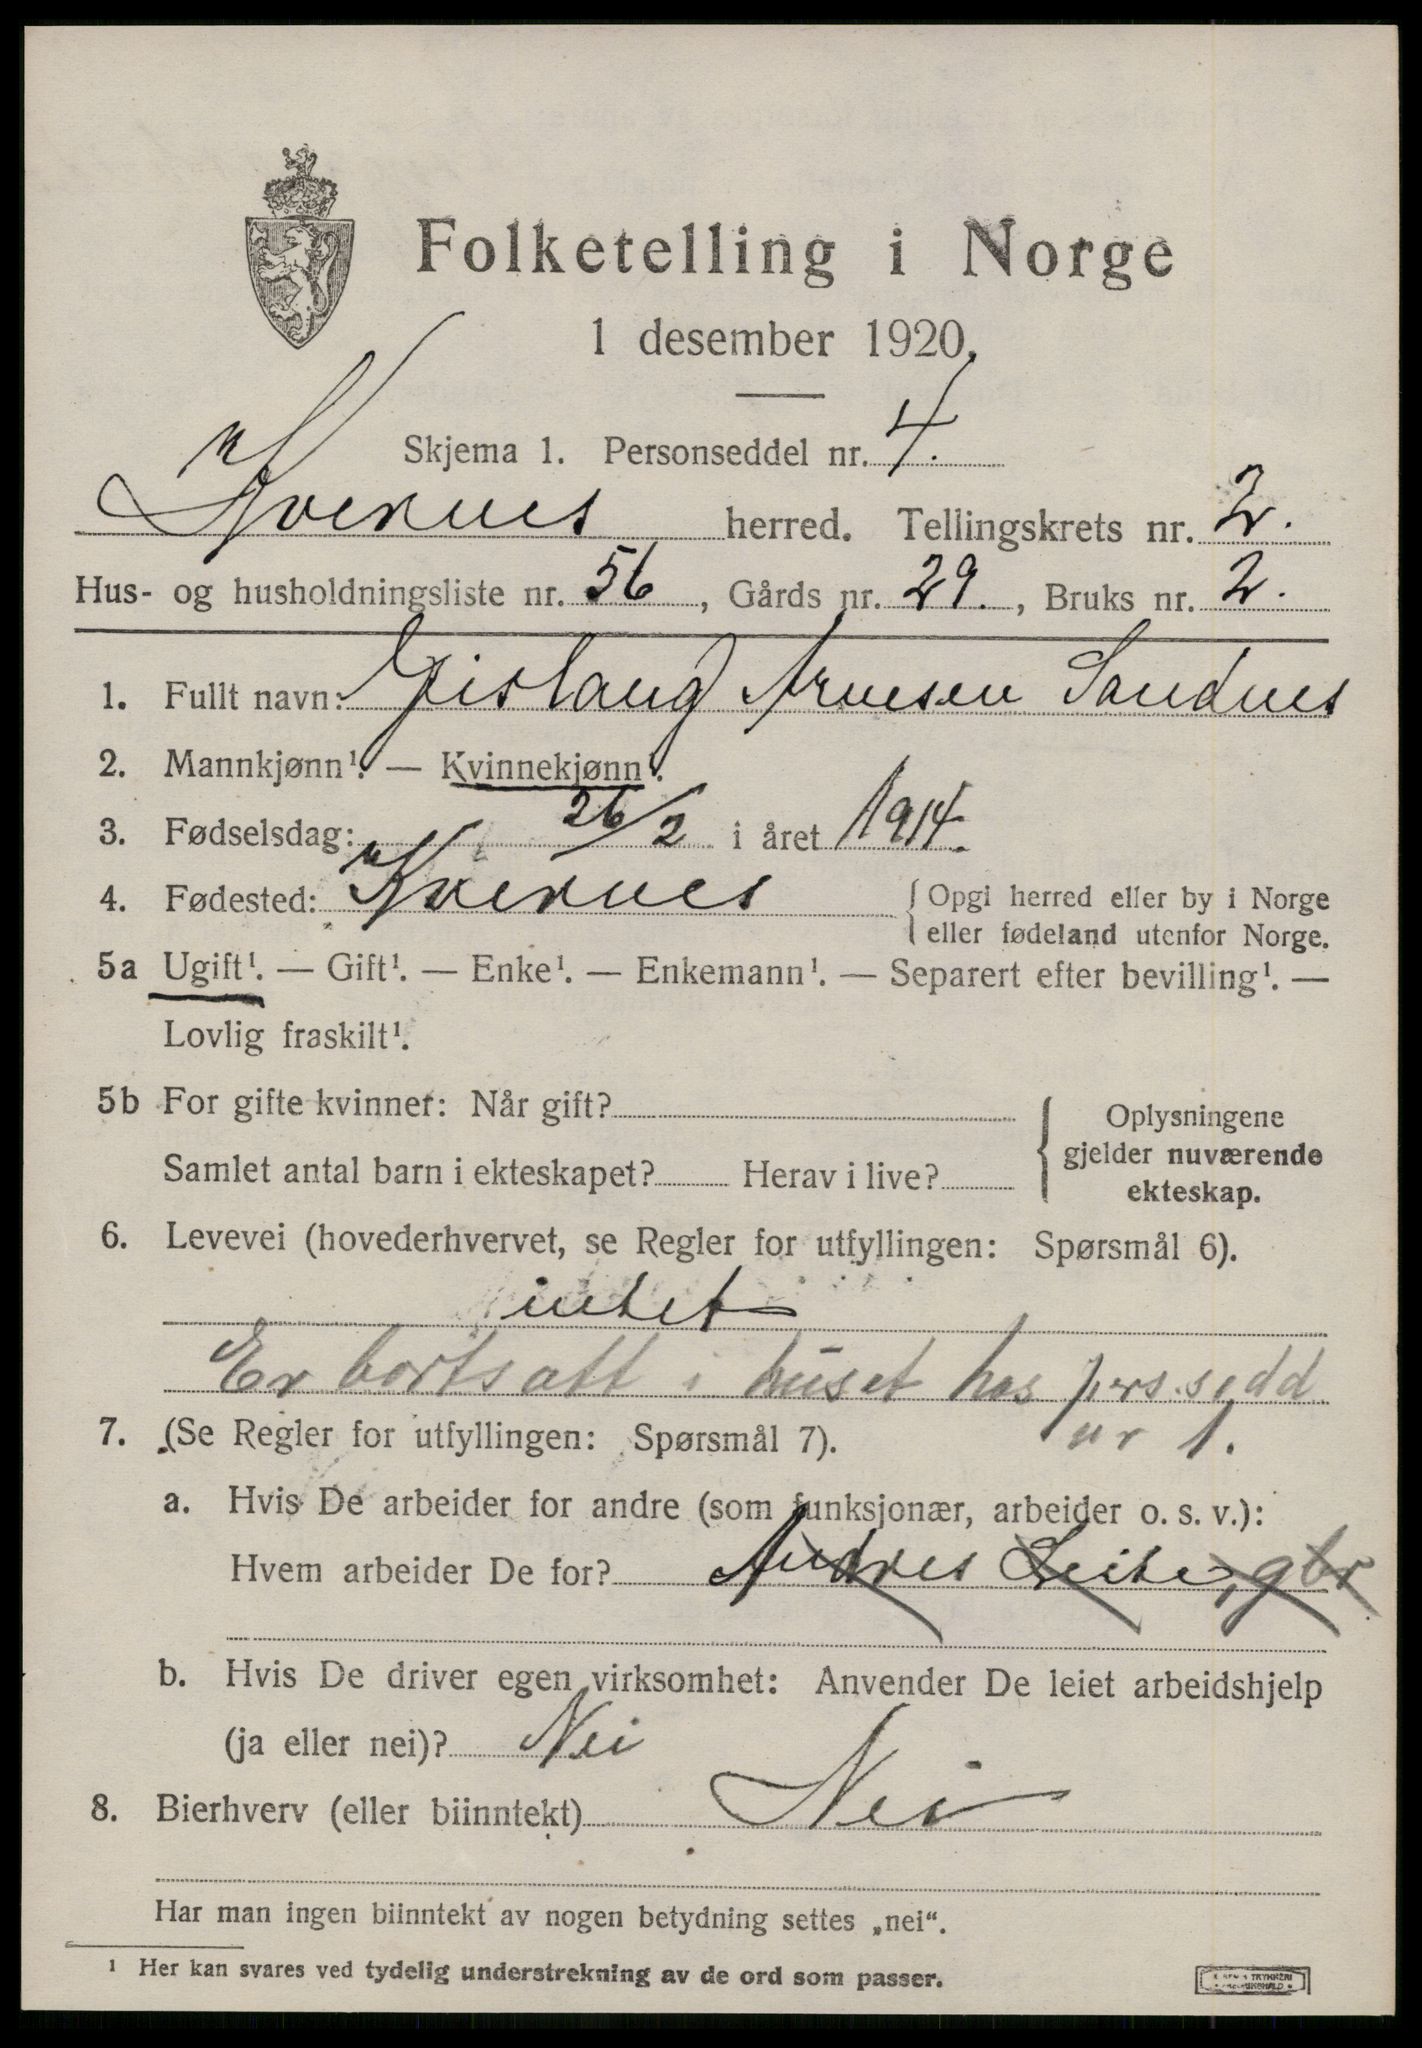 Folketelling i Norge
1 desember 1920.
Skjema 1. Personseddel nr. 4.
Kvernes herred. Tellingskrets nr. 2.
Hus- og husholdningsliste nr. 56, Gårds nr. 29., Bruks nr. 2.
1. Fullt navn: Gislaug Arnesen Sandnes
2. Mannkjønn¹. — Kvinnekjønn¹.
3. Fødselsdag: 26/2 i året 1914.
4. Fødested: Kvernes { Opgi herred eller by i Norge
eller fødeland utenfor Norge.
5a Ugift¹. — Gift¹. — Enke¹. — Enkemann¹. — Separert efter bevilling¹. —
Lovlig fraskilt¹.
5b For gifte kvinner: Når gift? { Oplysningene
gjelder nuværende
Samlet antal barn i ekteskapet? Herav i live?
ekteskap.
6. Levevei (hovederhvervet, se Regler for utfyllingen: Spørsmål 6).
intet
Er bortsatt i huset hos pers.sedd
nr 1.
7. (Se Regler for utfyllingen: Spørsmål 7).
a. Hvis De arbeider for andre (som funksjonær, arbeider o. s. v.):
Hvem arbeider De for? Andres Leite, gbr
b. Hvis De driver egen virksomhet: Anvender De leiet arbeidshjelp
(ja eller nei)? Nei
8. Bierhverv (eller biinntekt) Nei
Har man ingen biinntekt av nogen betydning settes „nei“.
¹ Her kan svares ved tydelig understrekning av de ord som passer.